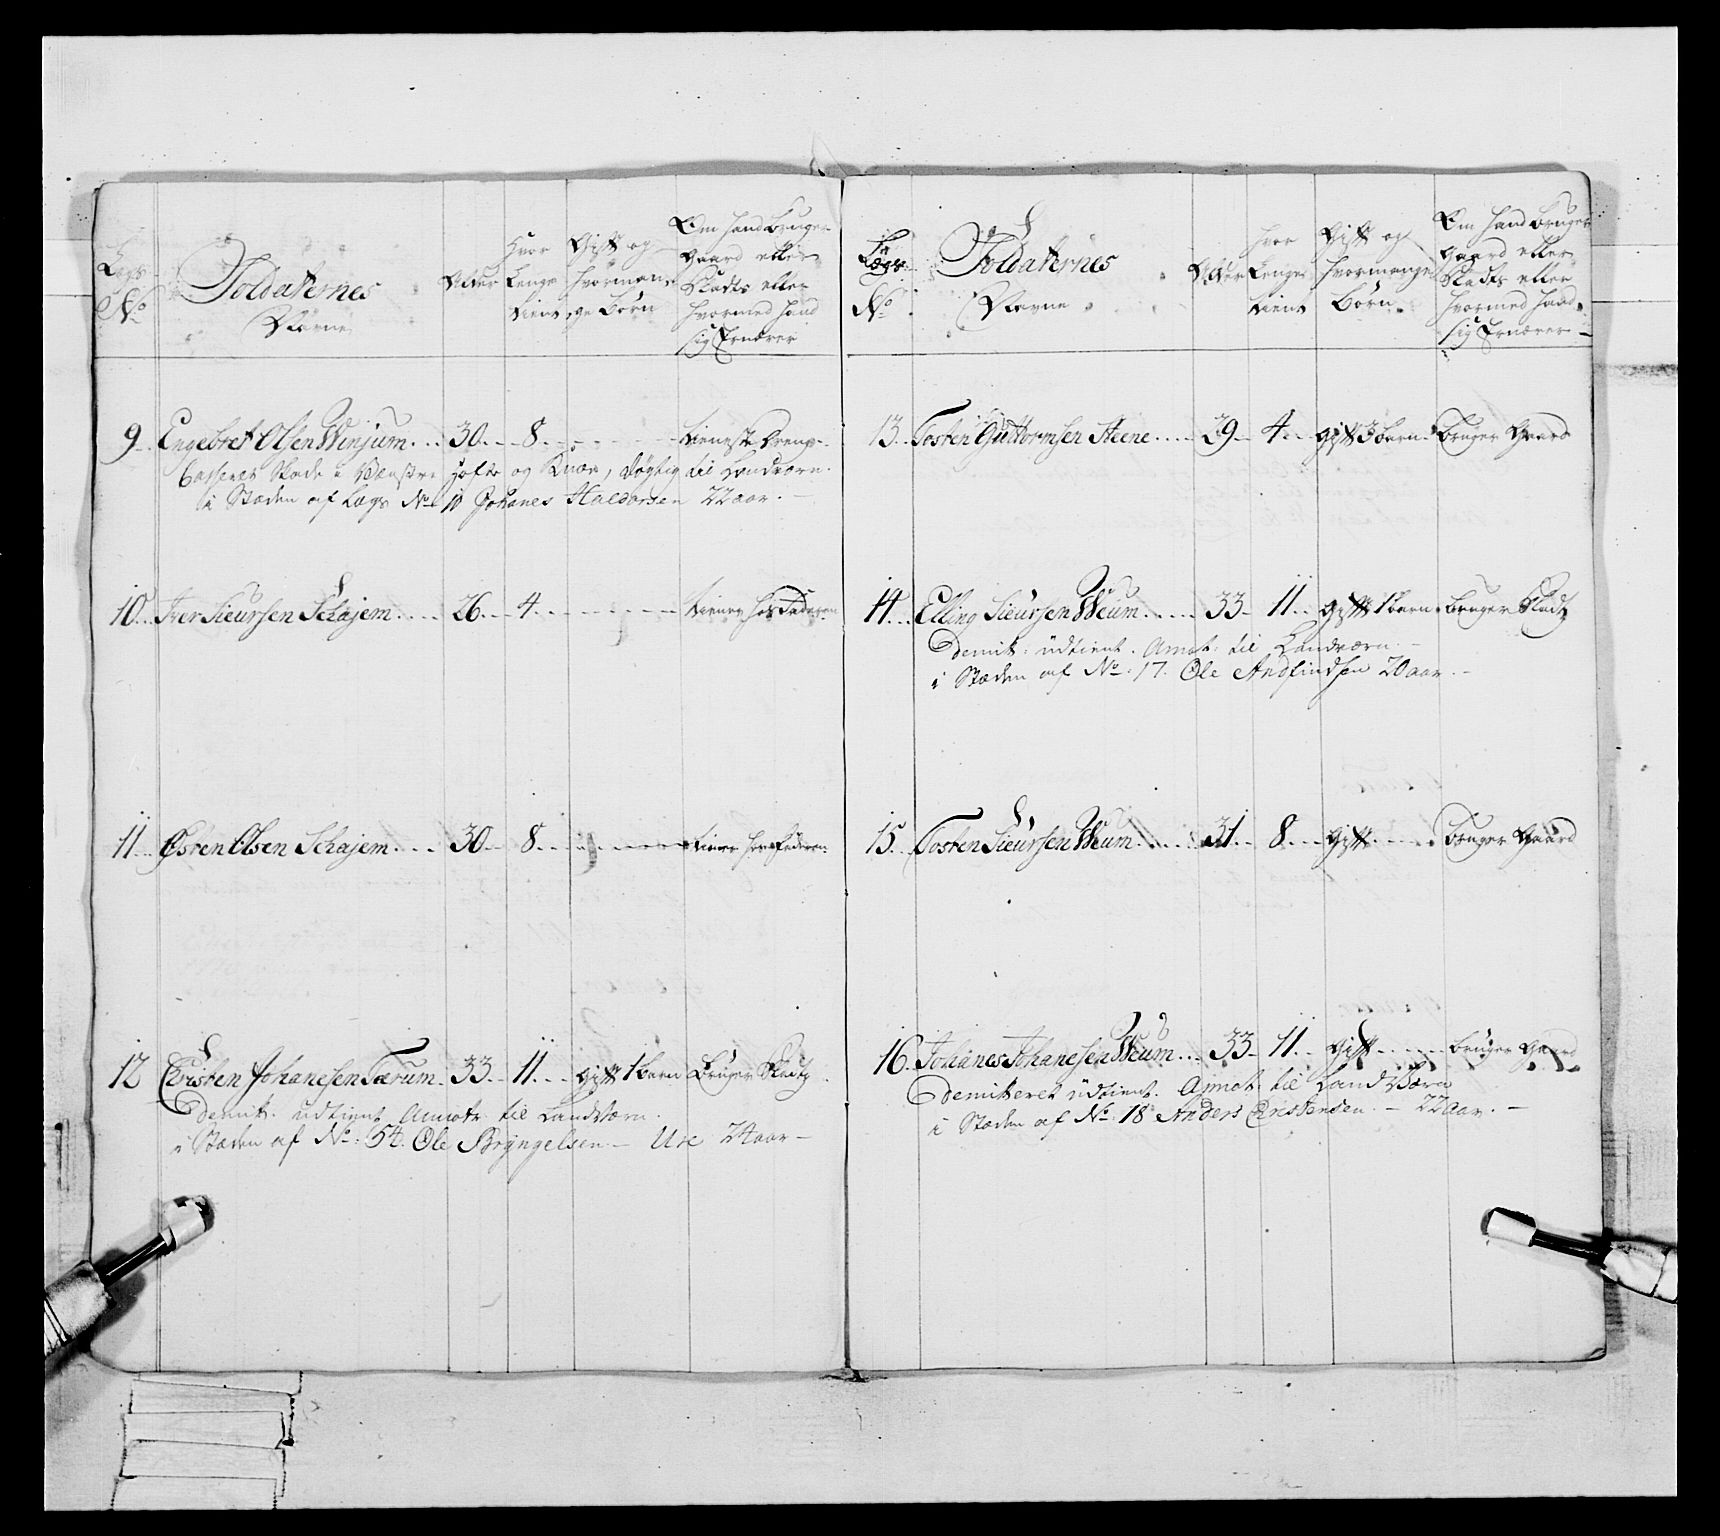 Lægs No
Soldaternes Navne
Alder
Hvor Lenge tient
Gift og hvormange Børn
Om hand bruger Gaard eller Pladts eller hvormed hand sig Ernærer
9 Engebret Olsen Winjum 30 8 tieneste Dreng
Casseret Skade i Venstre Hofte og Knæe, døgtig til Landværn.
i Stæden af Lægs No 10 Johanes Haldorsen 22 aar.
10 Iver Sieursen Schajem 26 4 tiener hos Faderen
11 Østen Olsen Schajem 30 8 tiener hos Faderen
12 Christen Johanesen Tærum 33 11 Gift 1 barn Bruger Pladtz
Demit. udtient Annotr til Landværn.
i Stæden af No: 54. Ole Bryngelsen — Ure 24 aar —
Lægs No
Soldaternes Navne
Alder
Hvor Lenge tient
Gift og hvormange Børn
Om hand bruger Gaard eller Pladts eller hvormed hand sig Ernærer
13 Tosten Guttormsen Steene 29 4 Gift 3 barn Bruger Gaard
14 Elling Sieursen Weum 33 11 Gift 1 barn bruger Pladtz
Demit: udtient. Annot: til Landværn.
i Stæden af No: 17. Ole Andfindsen 20 aar.
15 Tosten Sieursen Weum 31 8 Gift Bruger Gaard
16 Johanes Johanesen Weum 33 11 Gift bruger Gaard
Demitteret udtient. Annot til Landværn
i Stæden af No: 18 Anders Cristensen. — 22 aar. —